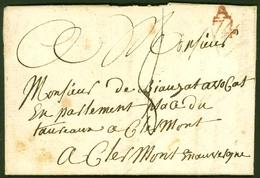 A
7
Monsieur
Monsieur de Biauzat avocat
en parlement place du
taureaux a Clermont
a Clermont en auvergne